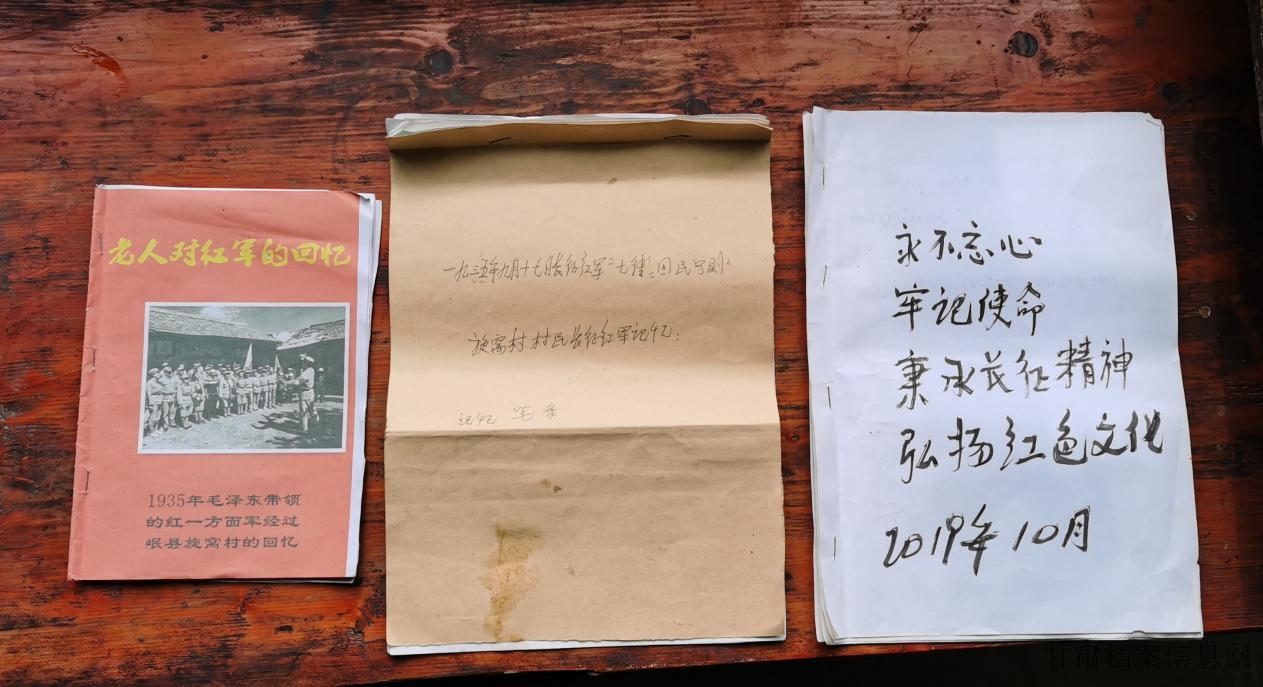 老人对红军的回忆
1935年毛泽东带领
的红一方面军经过
岷县旋窝村的回忆
一九三五年九月十七日长征红军二七律三回民守则
旋窝村村民长征红军记忆:
记忆 笔录
永不忘心
牢记使命
秉承长征精神
弘扬红色文化
2019年10月
甘肃档案信息网